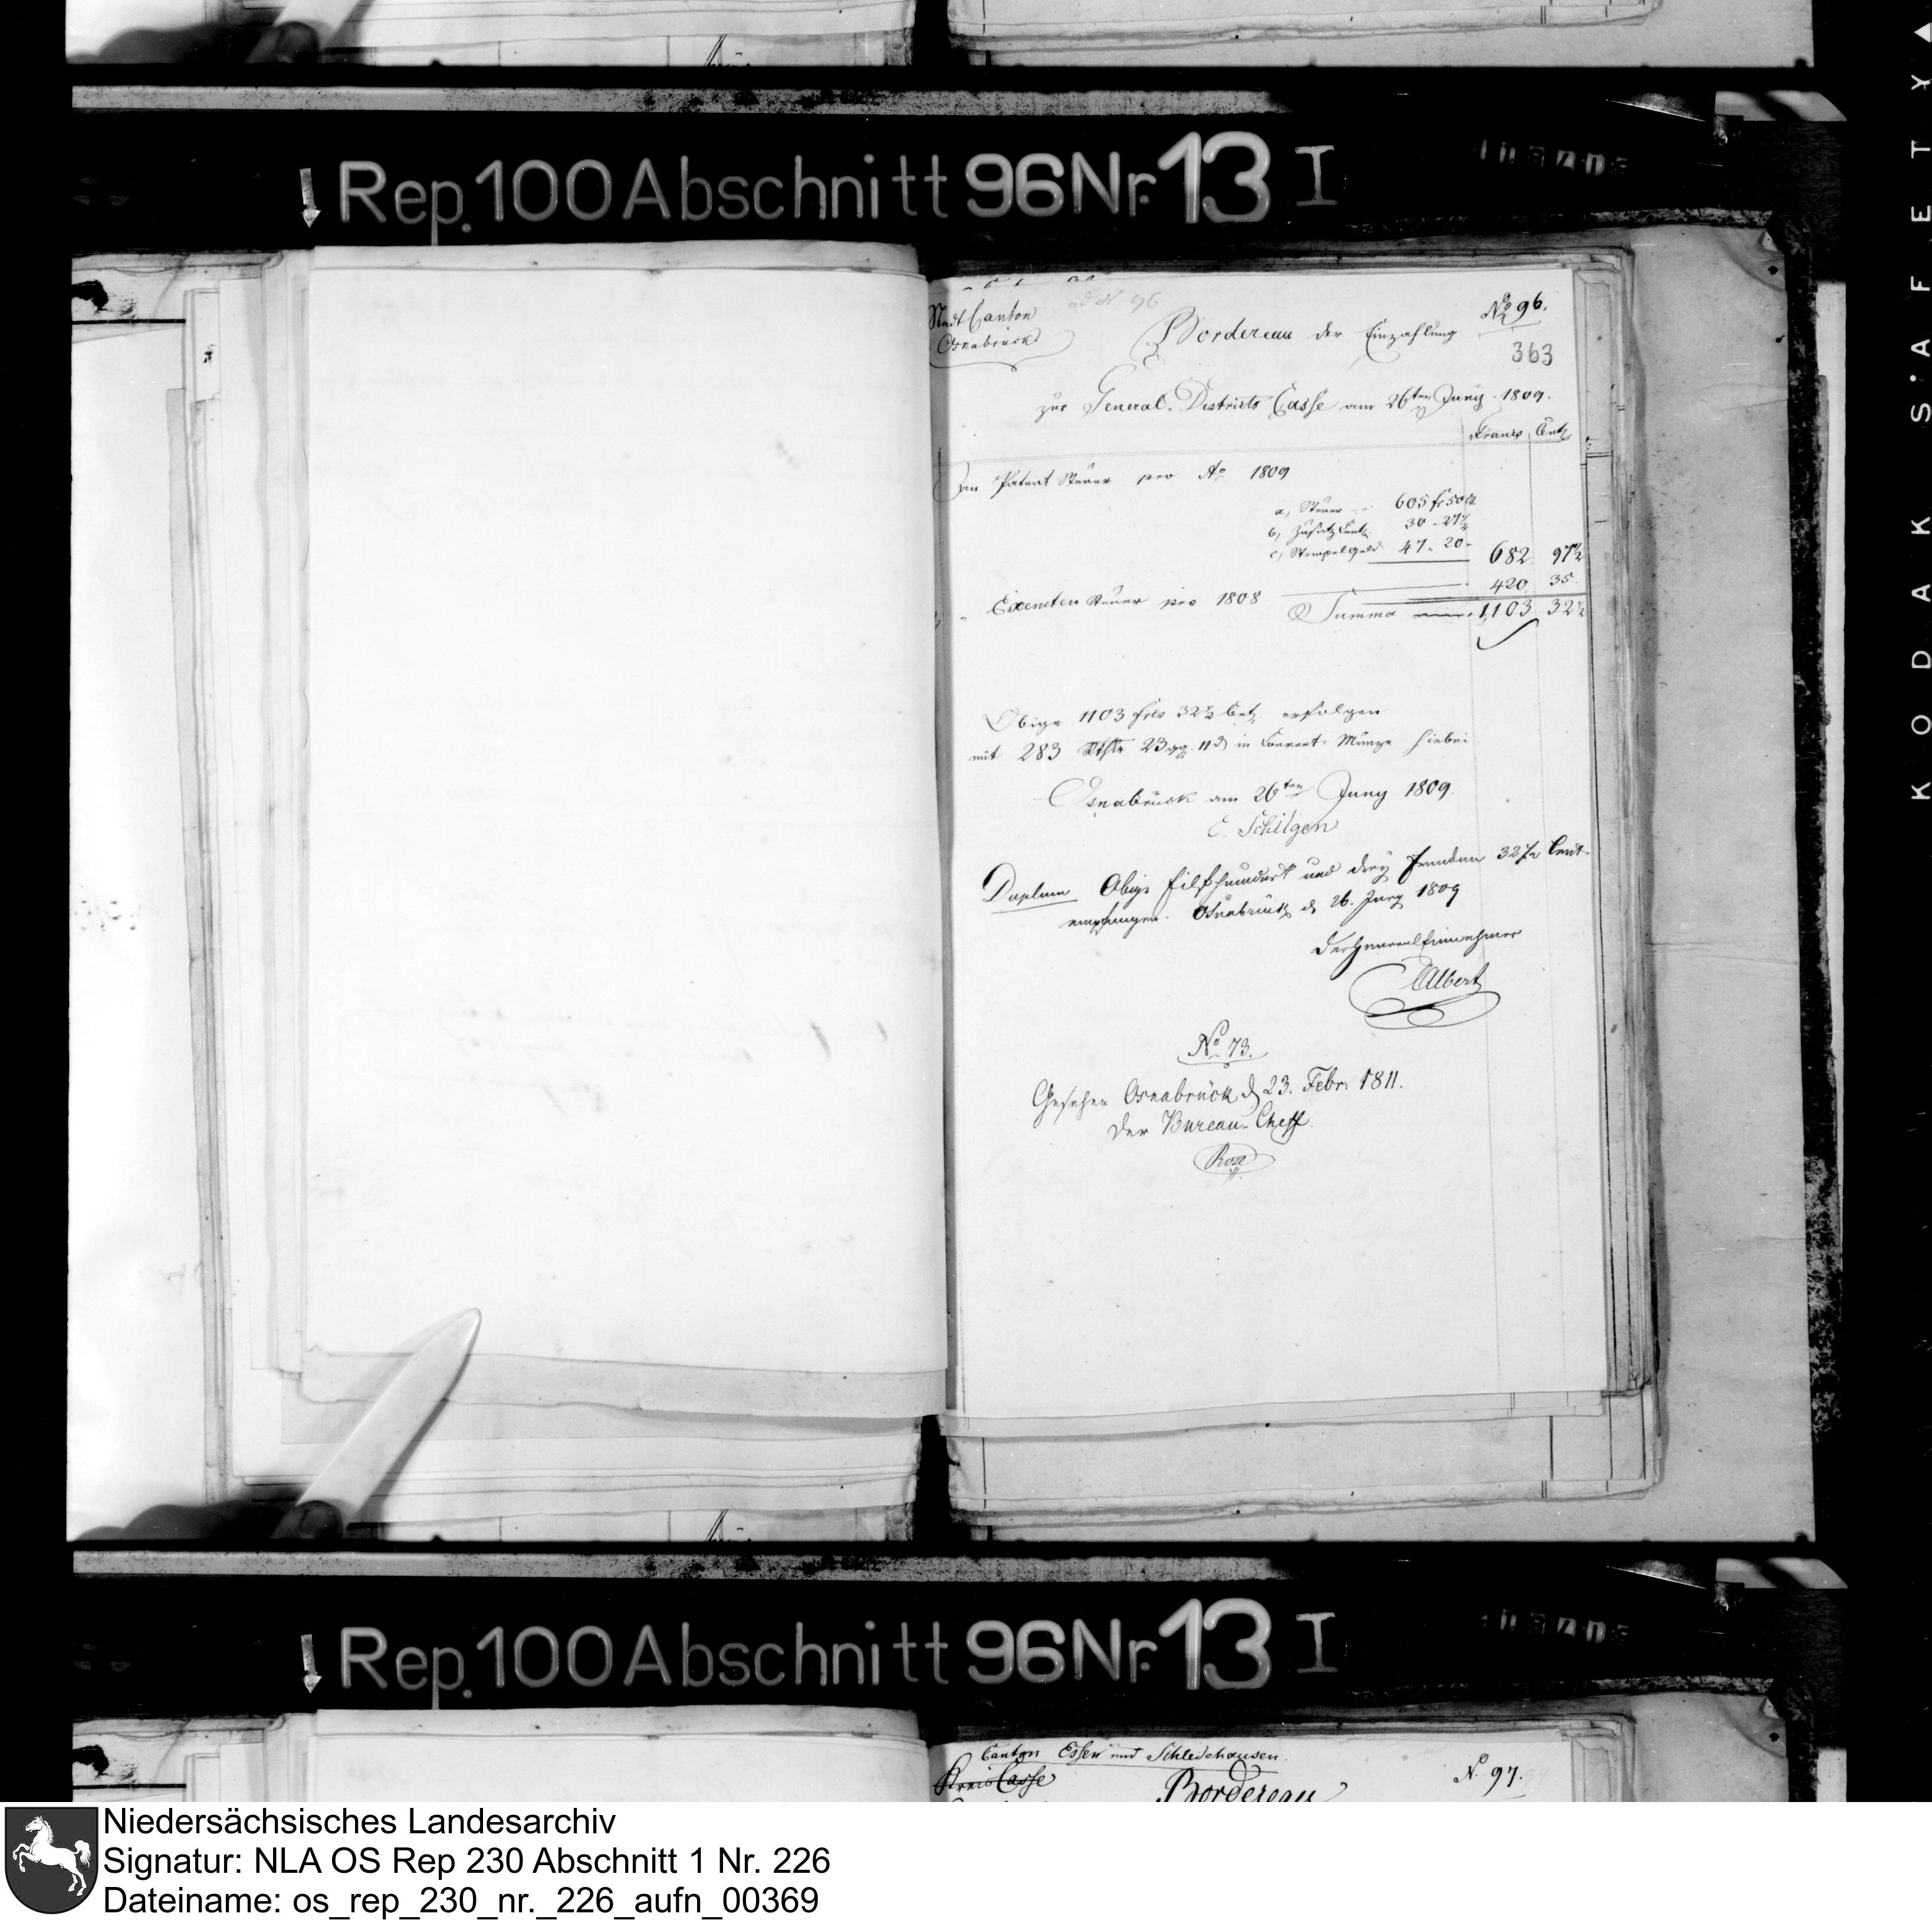 Rep. 100 Abschnitt 96 Nr. 13 I
Stadt Canton
Osnabrück
ad N 96
No 96.
363
Bordereau der Einzahlung
zur General-Districts Casse am 26ten Juny 1809.
Francs Cent.
An Patent Steuer pro Ao 1809
a, Steuer 605 fr 50 Ct.
b, Zusatz Cent. 30 - 27½
c, Stempelgeld 47 - 20 -
682 97½
" Exemten Steuer pro 1808 420 35
Summa 1,103 32½
Obige 1103 frcs 32½ Cent. erfolgen
mit 283 Rthlr 23 gg 11 d in Convent: Münze hiebei
Osnabrück am 26ten Juny 1809.
C. Schilgen
Duplum Obige Eilfhundert und drey Franken 32½ Cent.
empfangen. Osnabrück d 26. Juny 1809
Der General Einnehmer
Albert
No 73.
Gesehen Osnabrück d 23. Febr. 1811.
Der Bureau-Cheff.
Rose
Rep. 100 Abschnitt 96 Nr. 13 I
Canton Essen und Schledehausen.
Kreis Casse
Bordereau
N. 97.
KODAK SAFETY
Niedersächsisches Landesarchiv
Signatur: NLA OS Rep 230 Abschnitt 1 Nr. 226
Dateiname: os_rep_230_nr._226_aufn_00369